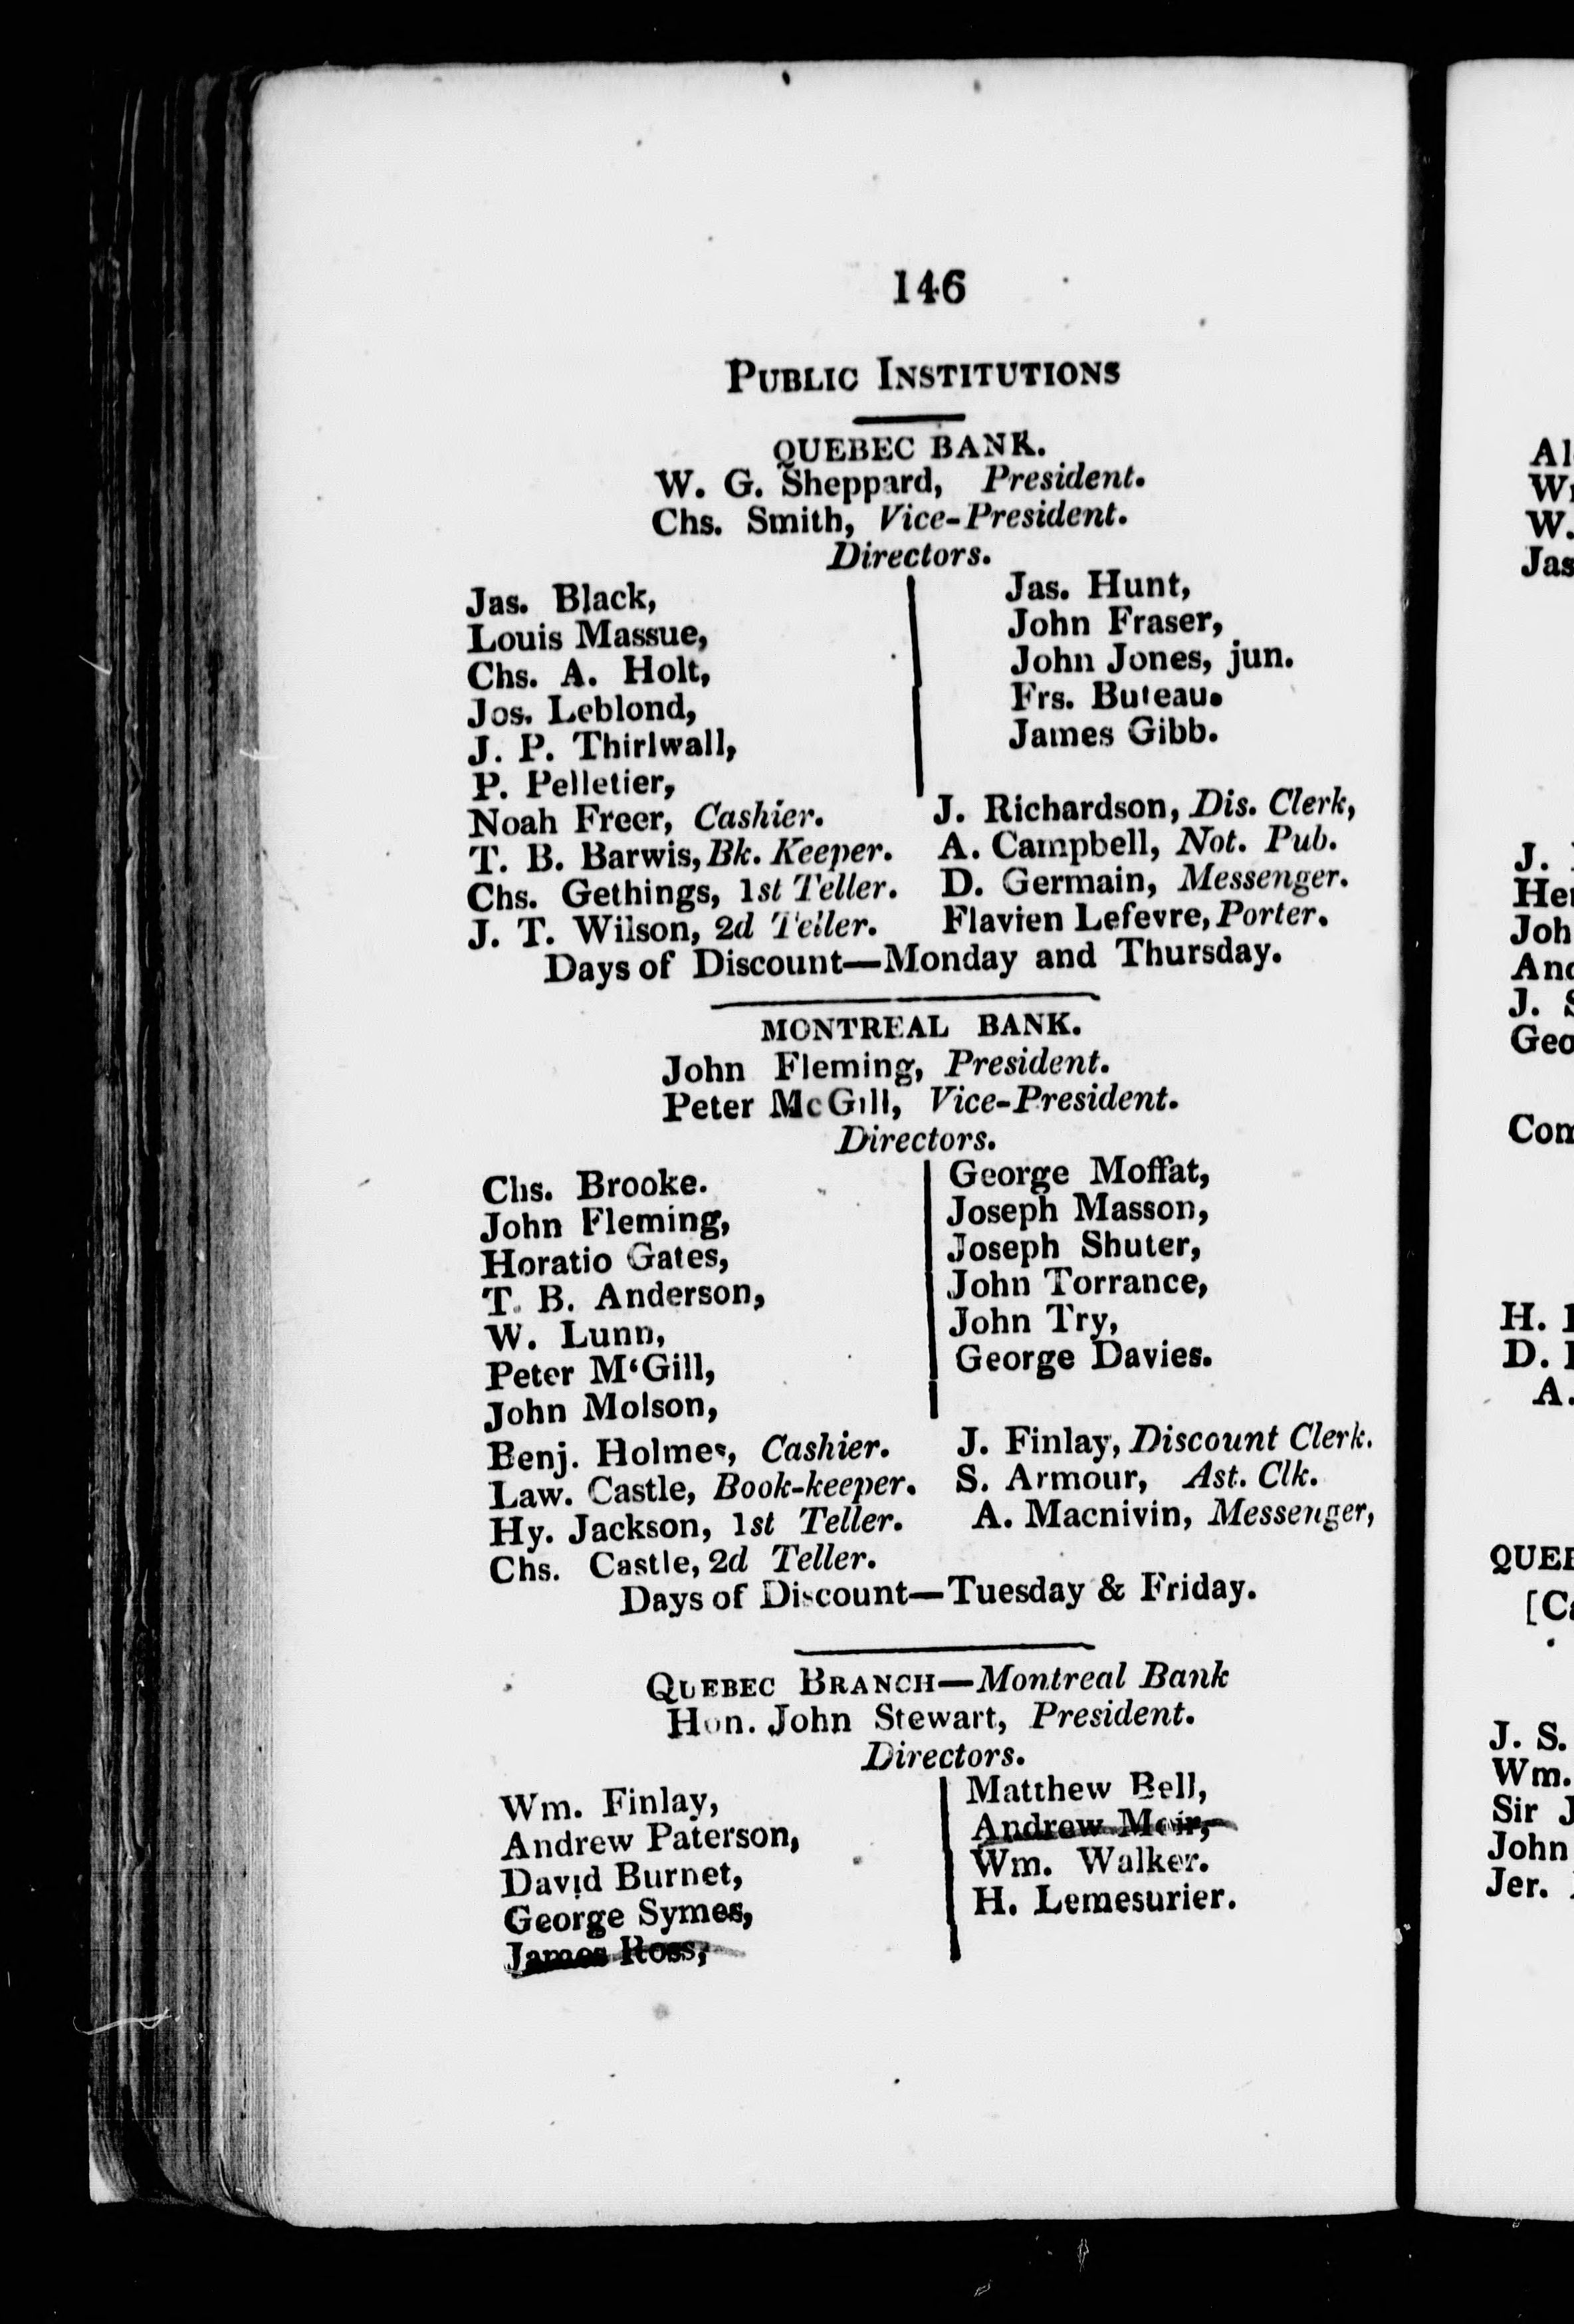 146
PUBLIC INSTITUTIONS
QUEBEC BANK.
W. G. Sheppard, President.
Chs. Smith, Vice-President.
Directors.
Jas. Black,
Louis Massue,
Chs. A. Holt,
Jos. Leblond,
J. P. Thirlwall,
P. Pelletier,
Jas. Hunt,
John Fraser,
John Jones, jun.
Frs. Buteau.
James Gibb.
Noah Freer, Cashier.
T. B. Barwis, Bk. Keeper.
Chs. Gethings, 1st Teller.
J. T. Wilson, 2d Teller.
J. Richardson, Dis. Clerk,
A. Campbell, Not. Pub.
D. Germain, Messenger.
Flavien Lefevre, Porter.
Days of Discount—Monday and Thursday.
MONTREAL BANK.
John Fleming, President.
Peter McGill, Vice-President.
Directors.
Chs. Brooke.
John Fleming,
Horatio Gates,
T. B. Anderson,
W. Lunn,
Peter M‘Gill,
John Molson,
George Moffat,
Joseph Masson,
Joseph Shuter,
John Torrance,
John Try,
George Davies.
Benj. Holmes, Cashier.
Law. Castle, Book-keeper.
Hy. Jackson, 1st Teller.
Chs. Castle, 2d Teller.
J. Finlay, Discount Clerk.
S. Armour, Ast. Clk.
A. Macnivin, Messenger,
Days of Discount—Tuesday & Friday.
QUEBEC BRANCH—Montreal Bank
Hon. John Stewart, President.
Directors.
Wm. Finlay,
Andrew Paterson,
David Burnet,
George Symes,
James Ross,
Matthew Bell,
Andrew Moir,
Wm. Walker.
H. Lemesurier.
W.
Jas
J.
Joh
J. S
Geo
H.
D.
A.
J. S.
Wm.
Sir J
John
Jer.